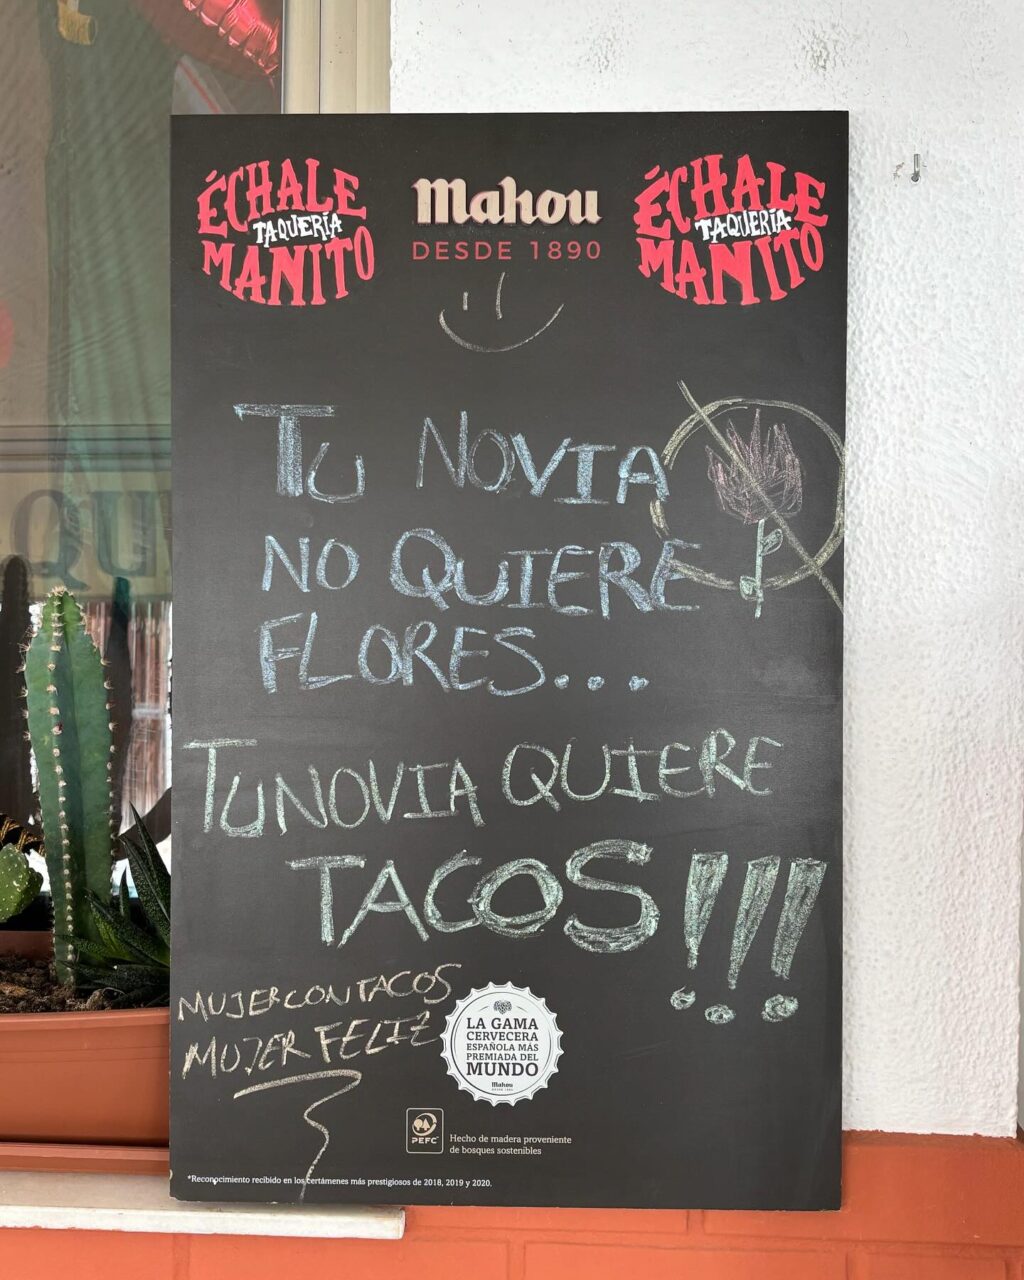 ÉCHALE
TAQUERÍA
MANITO
Mahou
DESDE 1890
ÉCHALE
TAQUERÍA
MANITO
TU NOVIA
NO QUIERE
FLORES...
TU NOVIA QUIERE
TACOS!!!
MUJER CON TACOS
MUJER FELIZ
LA GAMA
CERVECERA
ESPAÑOLA MÁS
PREMIADA DEL
MUNDO
Mahou
DESDE 1890
PEFC
Hecho de madera proveniente
de bosques sostenibles
*Reconocimiento recibido en los certámenes más prestigiosos de 2018, 2019 y 2020.
QU